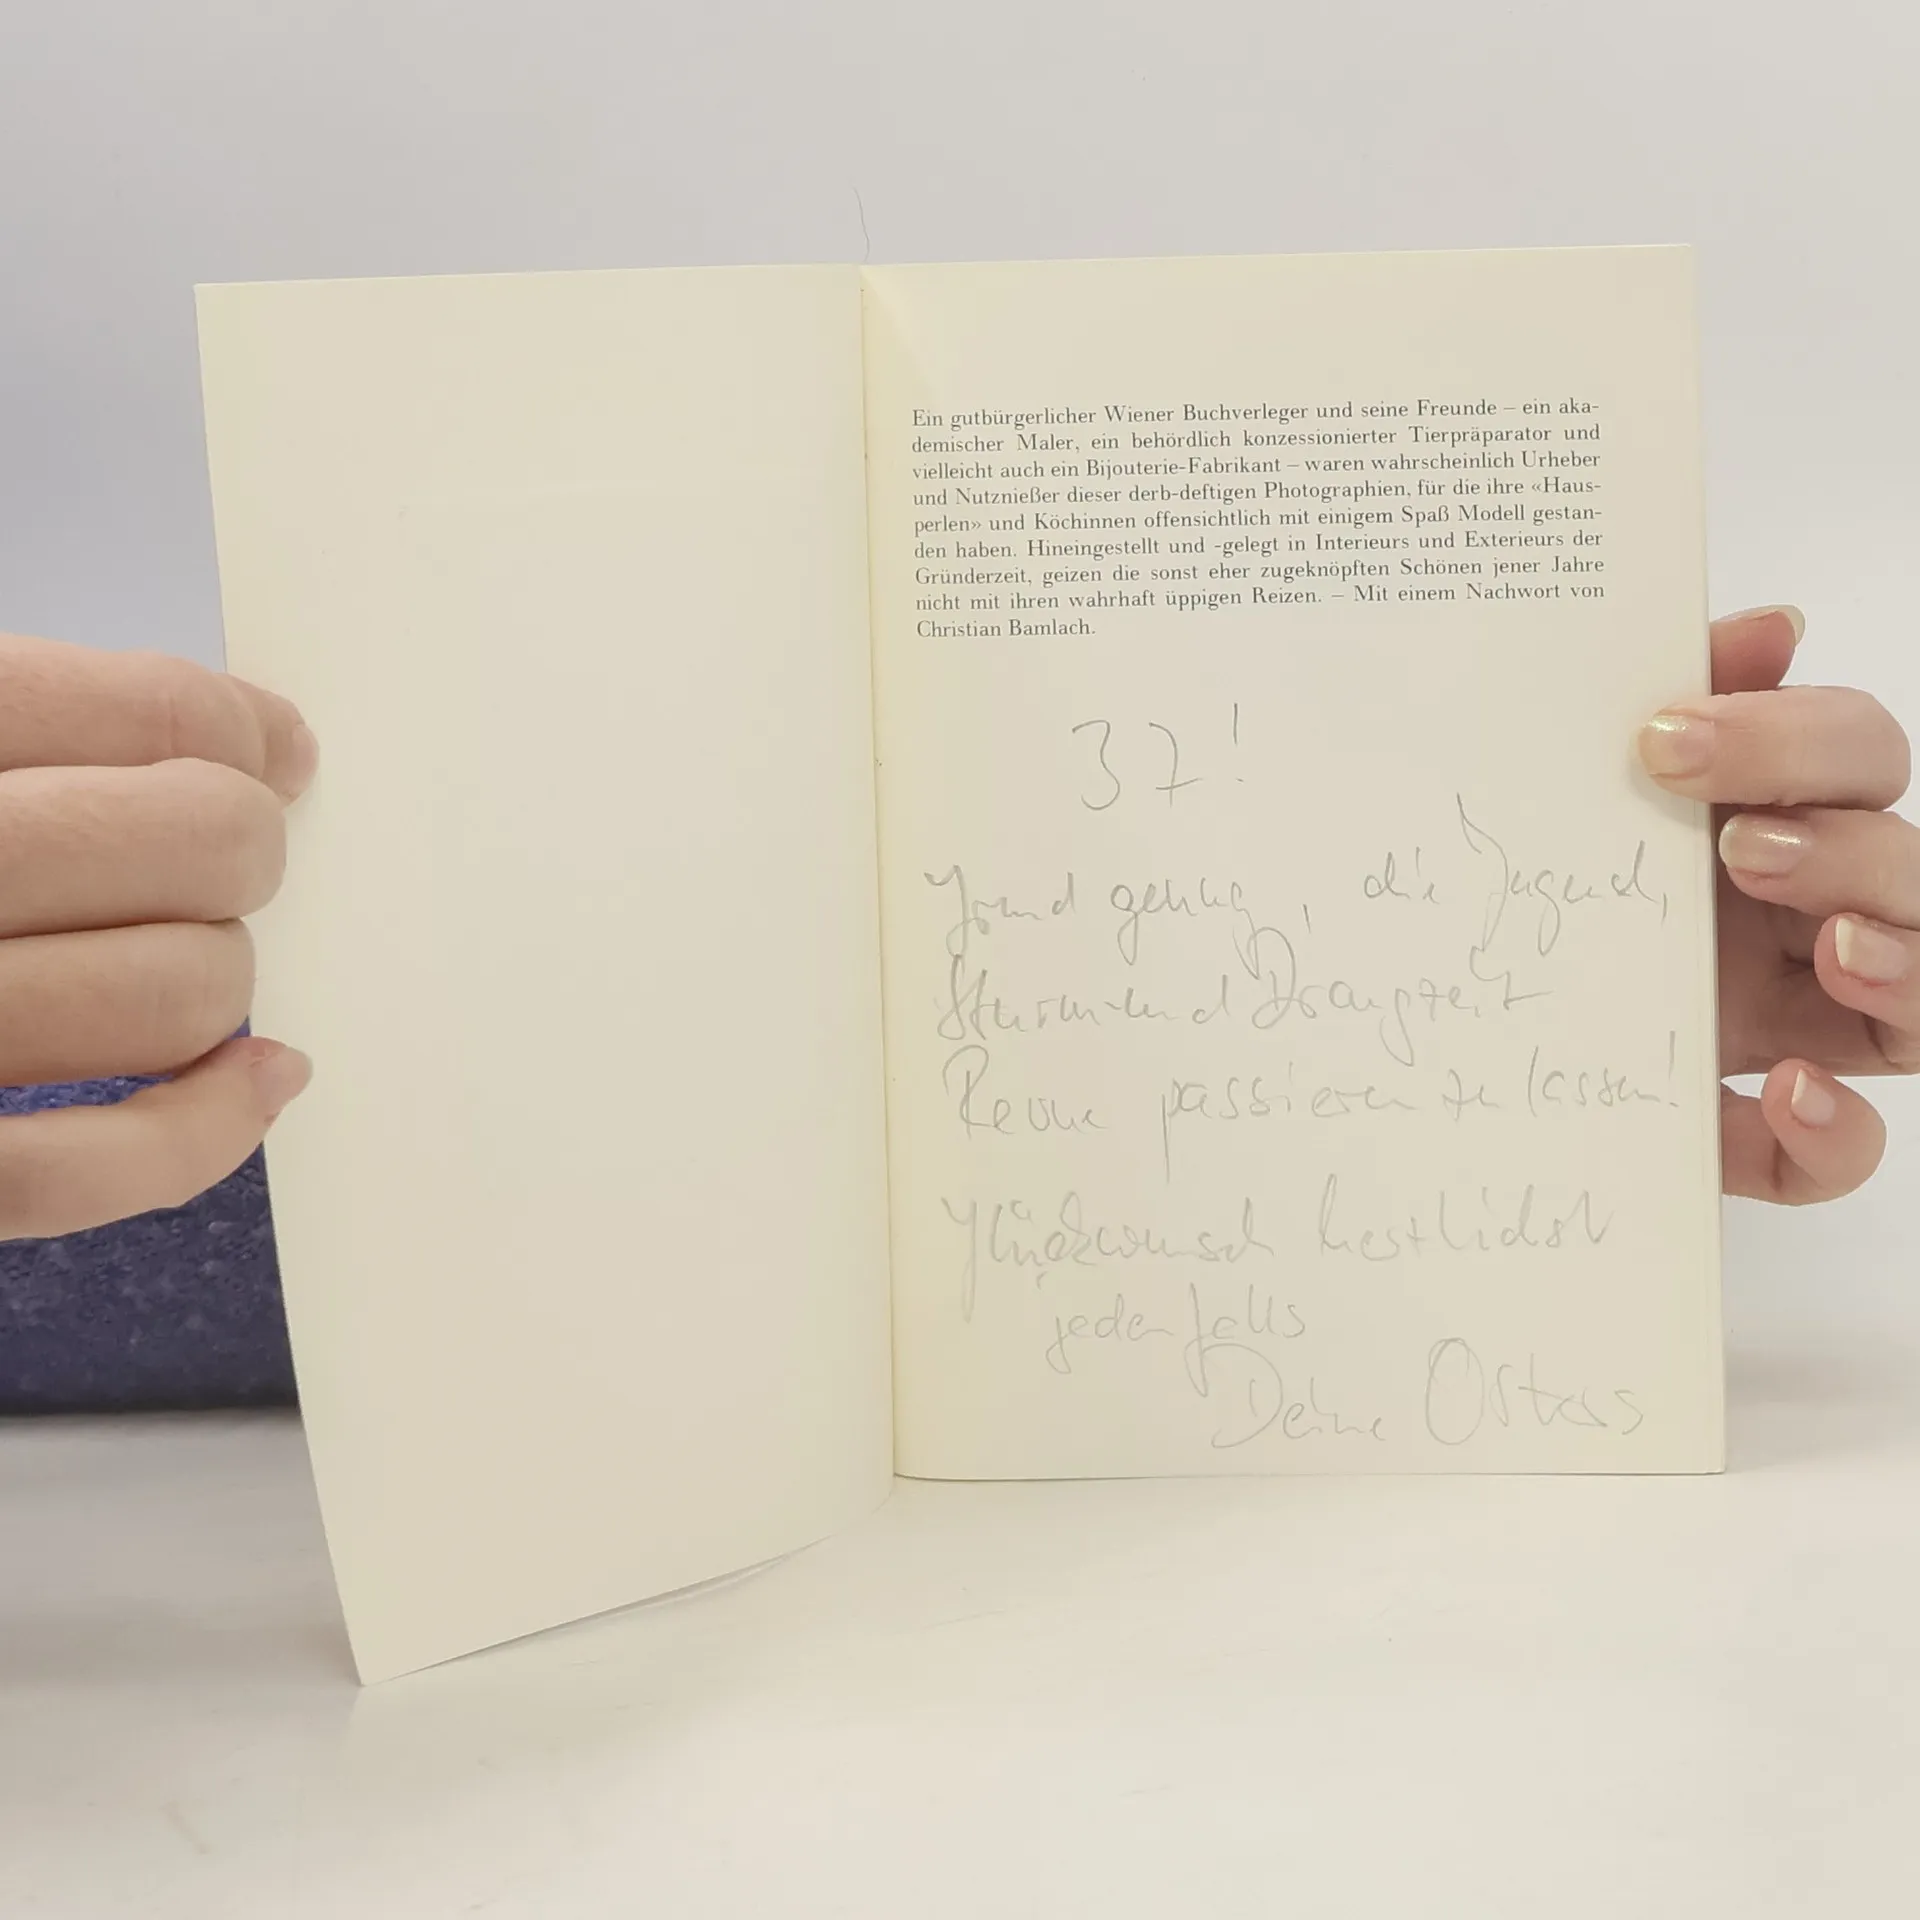 Ein gutbürgerlicher Wiener Buchverleger und seine Freunde – ein aka-
demischer Maler, ein behördlich konzessionierter Tierpräparator und
vielleicht auch ein Bijouterie-Fabrikant – waren wahrscheinlich Urheber
und Nutznießer dieser derb-deftigen Photographien, für die ihre «Haus-
perlen» und Köchinnen offensichtlich mit einigem Spaß Modell gestan-
den haben. Hineingestellt und -gelegt in Interieurs und Exterieurs der
Gründerzeit, geizen die sonst eher zugeknöpften Schönen jener Jahre
nicht mit ihren wahrhaft üppigen Reizen. – Mit einem Nachwort von
Christian Bamlach.
37!
Grund genug, die Jugend,
Sturm-und Drangzeit
Revue passieren zu lassen!
Glückwunsch herzlichst
jedenfalls
Deine Osters